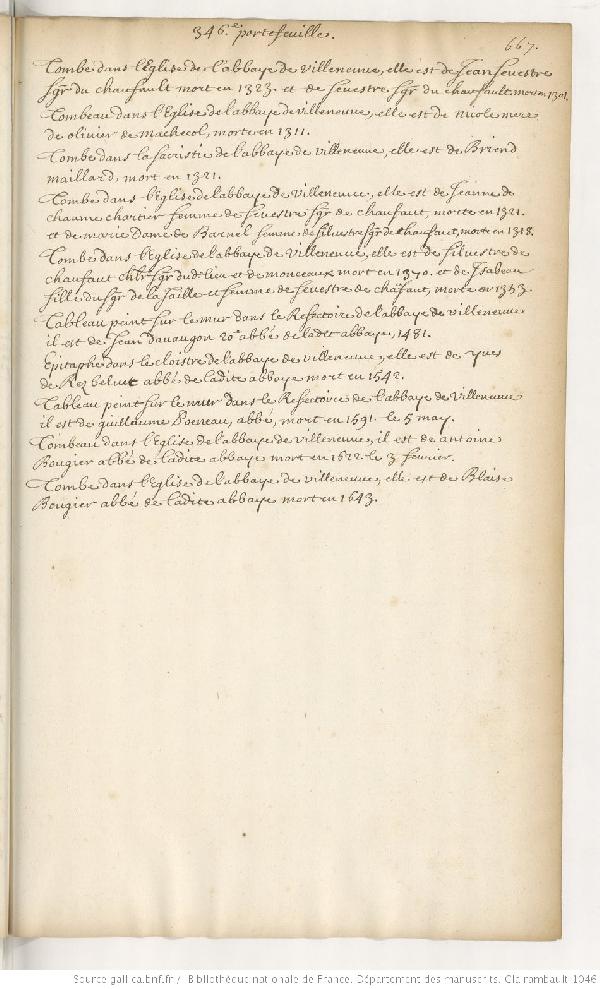 346.e portefeuille.
667.
Tombe dans l'Eglise de l'abbaye de Villeneuve, elle est de Jean Sevestre
sgr du chaufault mort en 1323. et de Sevestre sgr du chaufault, mort en 1301.
Tombeau dans l'Eglise de l'abbaye de Villeneuve, elle est de Nicole mere
de olivier de machecol, morte en 1311.
Tombe dans la sacristie de l'abbaye de Villeneuve, elle est de Briend
maillard, mort en 1321.
Tombe dans l'Eglise de l'abbaye de Villeneuve, elle est de Jeanne de
chaume chartier femme de Sevestre sgr de chaufaut, morte en 1321.
et de marie Dame de Barnel femme de silvestre sgr de chaufaut, morte en 1318.
Tombe dans l'Eglise de l'abbaye de Villeneuve, elle est de silvestre de
chaufaut chlr sgr dud. lieu et de monceaux mort en 1370. et de Isabeau
fille du sgr de la Jaille et femme de Sevestre de chafaut, morte en 1353.
Tableau peint sur le mur dans le Refectoire de l'abbaye de villeneuve
il est de Jean Davaugon 20e abbé de ladte abbaye, 1481.
Epitaphe dans le cloistre de l'abbaye de villeneuve, elle est de yves
de Rez abbé de ladite abbaye mort en 1542.
Tableau peint sur le mur dans le Refectoire de l'abbaye de Villeneuve
il est de guillaume abbé, mort en 1591. le 5 may.
Tombeau dans l'Eglise de l'abbaye de villeneuve, il est de antoine
Bougier abbé de ladite abbaye mort en 1622. le 3 fevrier.
Tombe dans l'Eglise de l'abbaye de villeneuve, elle est de Blaise
Bougier abbé de ladite abbaye mort en 1643.
Source gallica.bnf.fr / Bibliothèque nationale de France. Département des manuscrits. Clairambault 1046